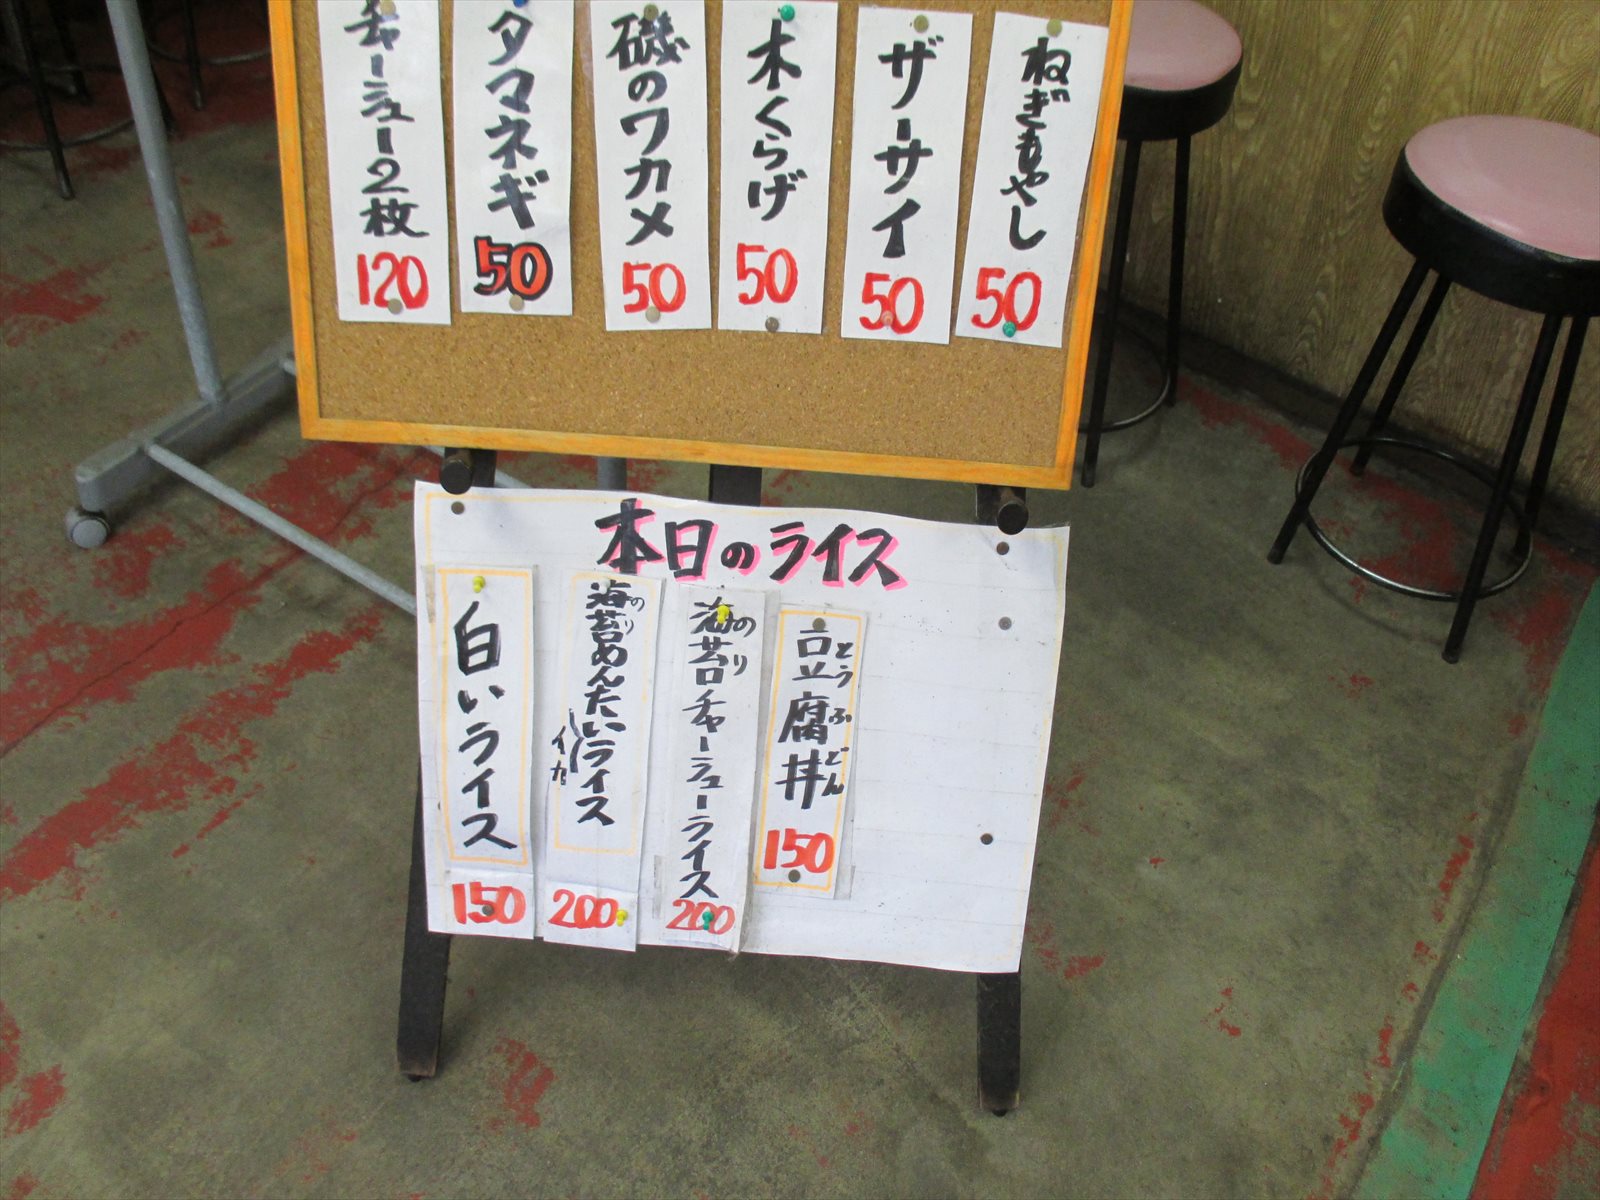 チャーシュー2枚
120
タマネギ
50
磯のワカメ
50
木くらげ
50
ザーサイ
50
ねぎもやし
50
本日のライス
白いライス
150
海苔めんたいライス
のり
イカ
200
海苔チャーシューライス
のり
200
豆腐丼
とうふどん
150